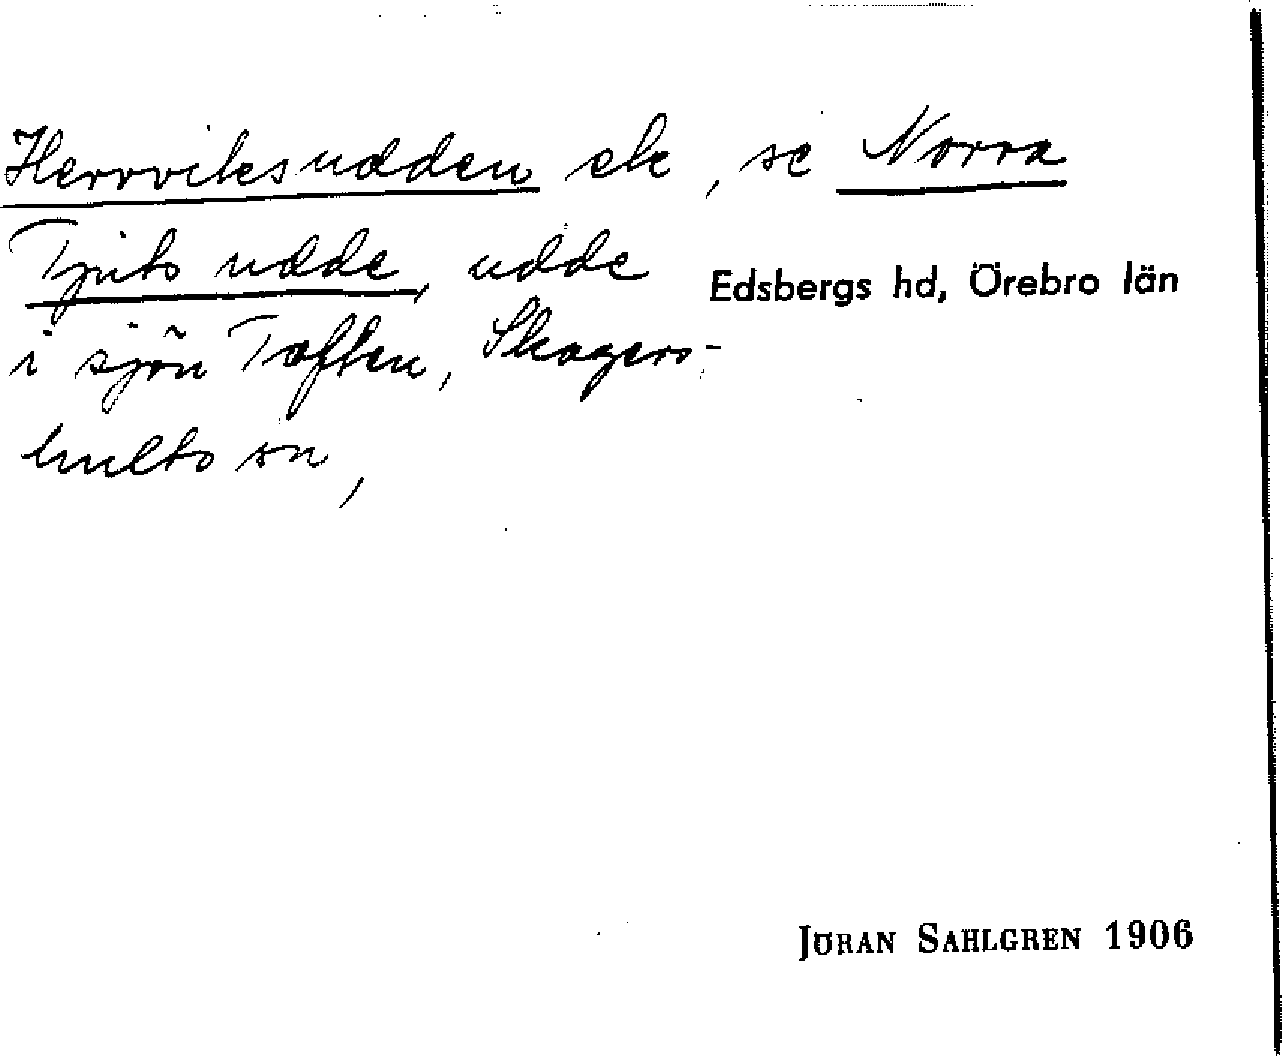 Herrviksudden ek, se Norra
udde, udde
i sjön Toften, Skagers-
hults sn,
Edsbergs hd, Örebro län
JÖRAN SAHLGREN 1906